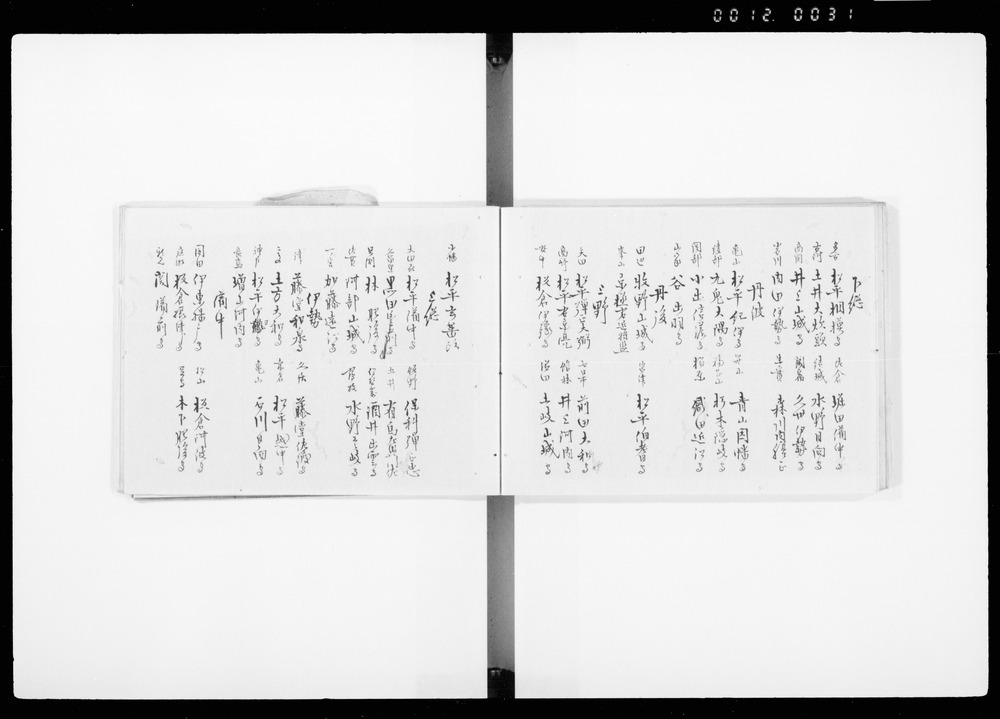 0012 0031
下総
松平相模守 佐倉 堀田備中守
古河 土井大炊頭 結城 水野日向守
高岡 井上山城守 関宿 久世伊勢守
小見川 内田伊勢守 生実 森川内膳正
丹波
亀山 松平紀伊守 青山因幡守
綾部 九鬼大隅守 福知山 朽木隠岐守
園部 小出信濃守 柏原 織田近江守
山家 谷出羽守
丹後
田辺 牧野山城守 宮津 松平伯耆守
峯山 京極
上野
矢田 松平弾正弼 七日市 前田大和守
高崎 松平右京亮 館林 井上河内守
安中 板倉伊豫守 沼田 土岐山城守
小幡 松平玄蕃頭
上総
大田喜 松平備中守 飯野 保科弾正忠
久留里 黒田 五井 有馬
貝渕 林肥後守 酒井出雲守
佐貫 阿部山城守 鶴牧 水野壱岐守
一宮 加藤遠江守
伊勢
津 藤堂和泉守 久居 藤堂佐渡守
土方大和守 桑名 松平越中守
神戸 亀山 石川日向守
長島 増山河内守
備中
岡田 伊東播磨守 松山 板倉阿波守
庭瀬 板倉摂津守 足守 木下肥後守
新見 関備前守